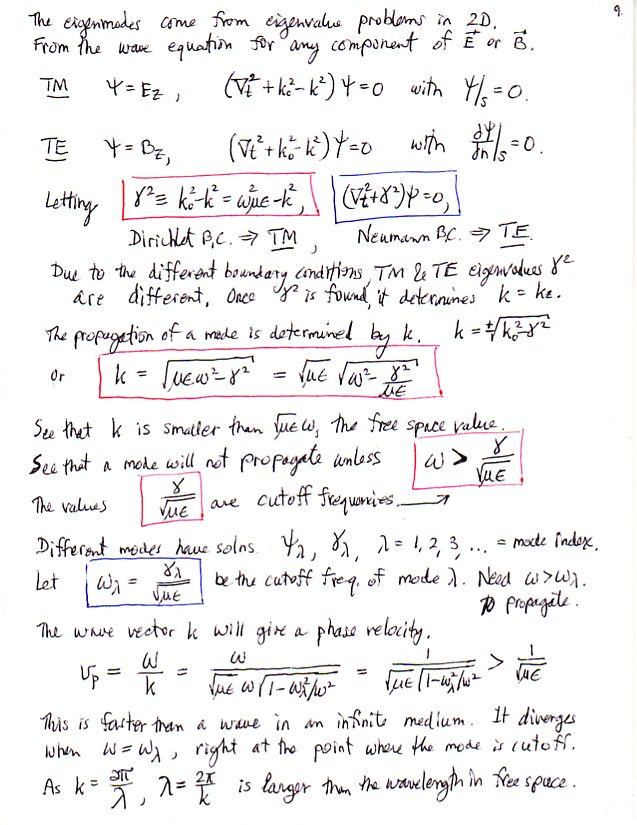 9.
The eigenmodes come from eigenvalue problems in 2D.
From the wave equation for any component of E⃗ or B⃗.
TM ψ = E_z, (∇_t² + k_o² − k²) ψ = 0 with ψ|_s = 0.
TE ψ = B_z, (∇_t² + k_o² − k²) ψ = 0 with ∂ψ/∂n|_s = 0.
Letting γ² ≡ k_o² − k² = ω²με − k², (∇_t² + γ²)ψ = 0,
Dirichlet B.C. ⇒ TM, Neumann B.C. ⇒ TE.
Due to the different boundary conditions, TM & TE eigenvalues γ²
are different. Once γ² is found, it determines k = k_z.
The propagation of a mode is determined by k. k = ±√(k_o² − γ²)
or k = √(μεω² − γ²) = √με √(ω² − γ²/με)
See that k is smaller than √με ω, the free space value.
See that a mode will not propagate unless ω > γ/√με
The values γ/√με are cutoff frequencies. ⟶
Different modes have solns. ψ_λ, γ_λ, λ = 1, 2, 3, ... = mode index.
Let ω_λ = γ_λ/√με be the cutoff freq. of mode λ. Need ω > ω_λ.
to propagate.
The wave vector k will give a phase velocity.
v_p = ω/k = ω/(√με ω √(1 − ω_λ²/ω²)) = 1/(√με √(1 − ω_λ²/ω²)) > 1/√με
This is faster than a wave in an infinite medium. It diverges
when ω = ω_λ, right at the point where the mode is cutoff.
As k = 2π/λ, λ = 2π/k is larger than the wavelength in free space.